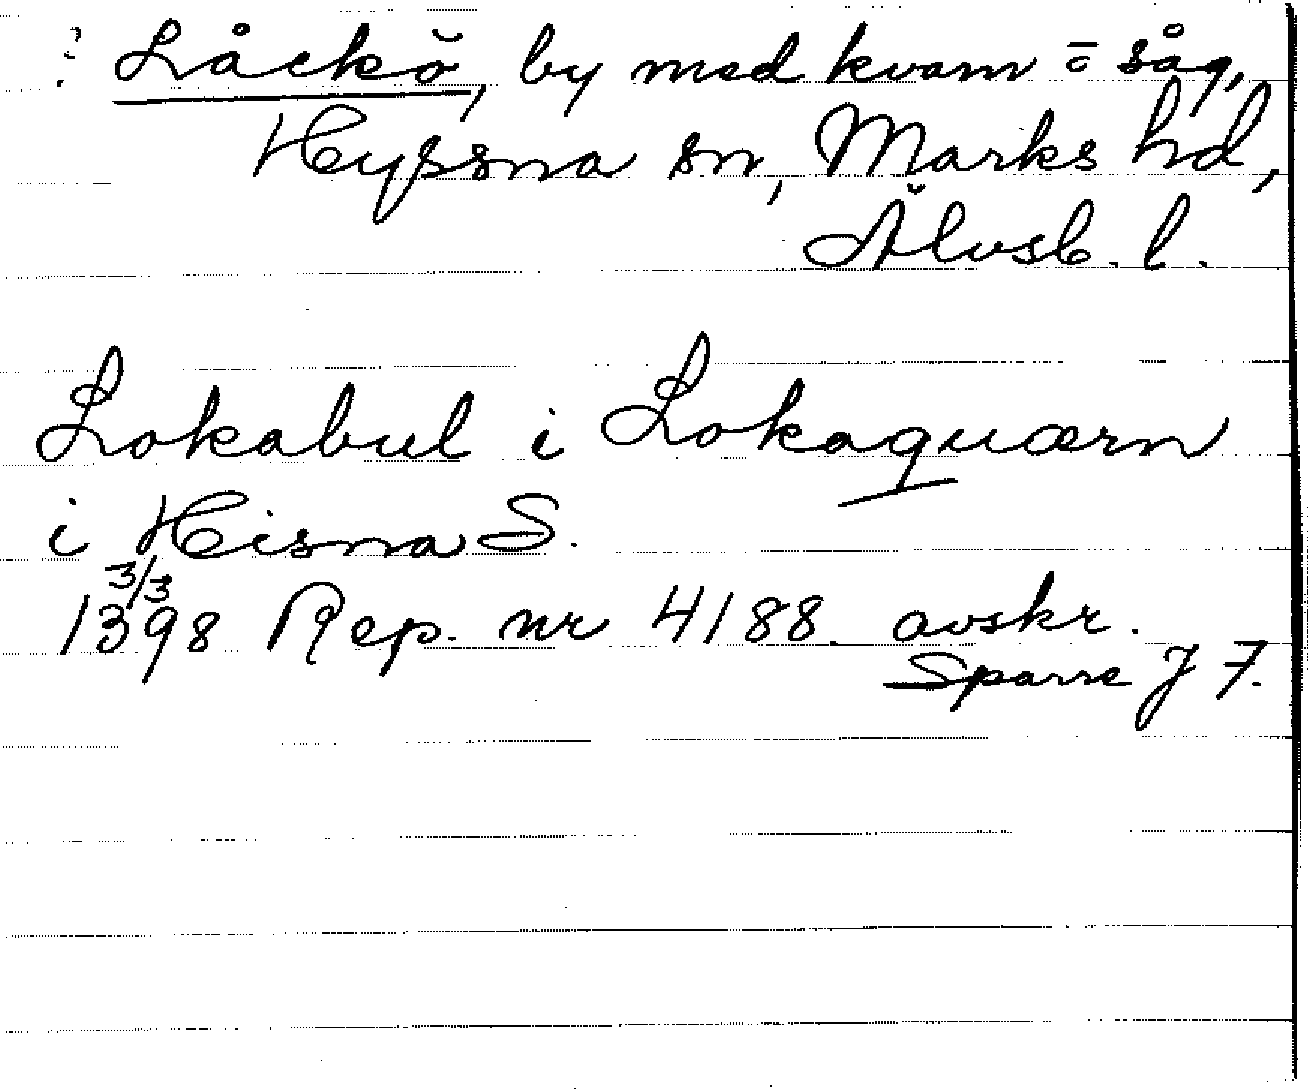 ? Låckö, by med kvarn = såg,
Hyssna sn, Marks hd,
Älvsb. l.
Lokabul i Lokaquærn
i Hisna S.
3/3
1398 Rep. nr 4188. avskr.
Sparre J F.